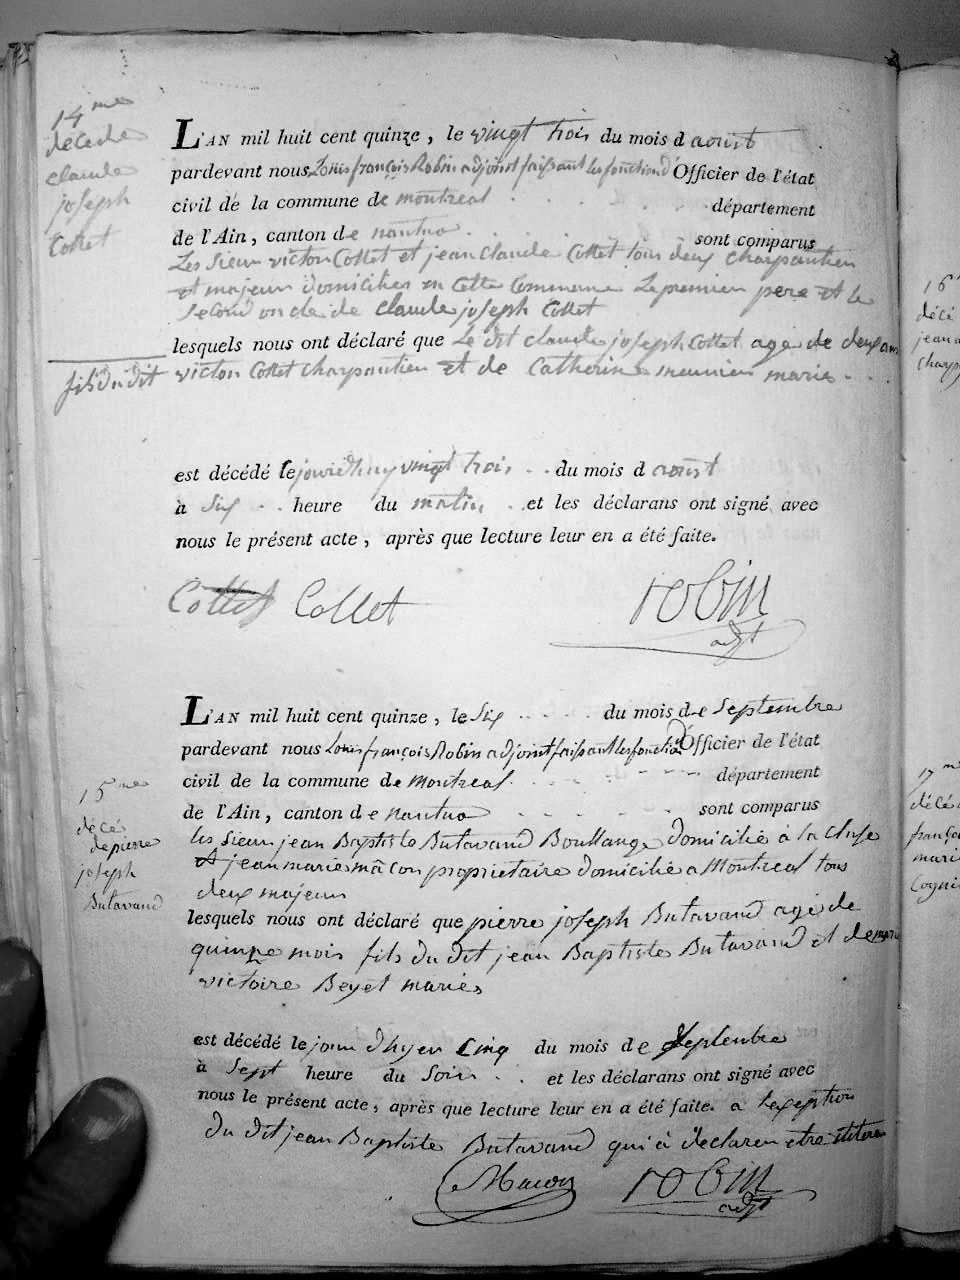 14me
décé de
claude
joseph
Collet
L'AN mil huit cent quinze, le vingt trois du mois d aoust
pardevant nous Louis françois Robin adjoint faissant les fonctions d'Officier de l'état
civil de la commune de montreal département
de l'Ain, canton de nantua sont comparus
Les Sieur victor Collet et jean Claude Collet tous deux charpantier
et majeur domicilies en Cette Commune Le premier pere et le
second oncle de claude joseph Collet
lesquels nous ont déclaré que Le dit claude joseph Collet age de deux ans
fils du dit victor Collet charpantier et de Catherine meunier maries
est décédé le jourdhuy vingt trois du mois d aoust
à Six heure du matin et les déclarans ont signé avec
nous le présent acte, après que lecture leur en a été faite.
Collet Collet robin
adjt
L'AN mil huit cent quinze, le Six du mois de Septembre
pardevant nous Louis françois Robin adjoint faissant les fonction d'Officier de l'état
civil de la commune de Montreal département
de l'Ain, canton de nantua sont comparus
15me
décé
de pierre
joseph
Butavand
les Sieur jean Baptiste Butavand Boullange domicilié à la Cluse
et jean marie mâcon propriétaire domicilié a Montreal tous
deux majeur
lesquels nous ont déclaré que pierre joseph Butavand agé de
quinze mois fils du dit jean Baptiste Butavand et de marie
victoire Beyet mariés
est décédé le jour dhyer Cinq du mois de Septembre
à Sept heure du Soir et les déclarans ont signé avec
nous le présent acte, après que lecture leur en a été faite. a lexseption
du dit jean Baptiste Butavand qui à déclarer etre iliteré
Macon robin
adjt
16
décé
jean
charp
17me
décé
françoi
marie
Cogni